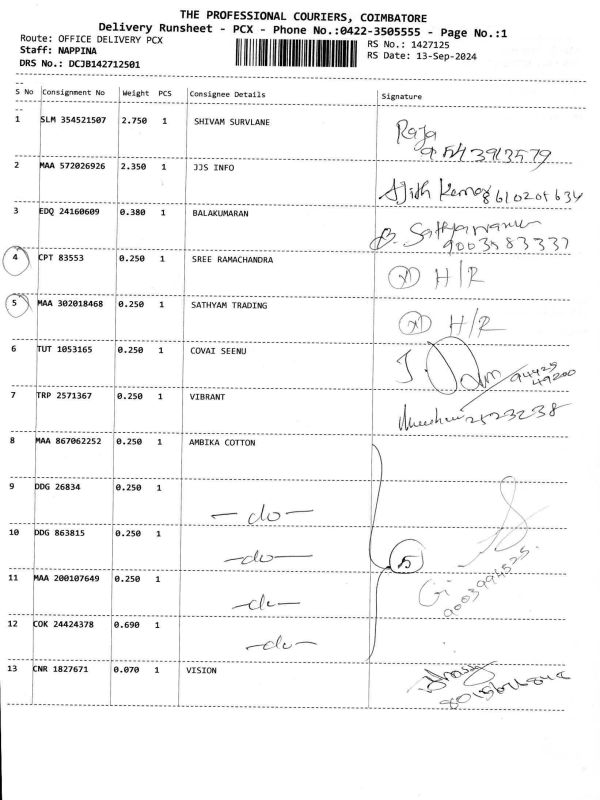 THE PROFESSIONAL COURIERS, COIMBATORE
Delivery Runsheet - PCX - Phone No.:0422-3505555 - Page No.:1
Route: OFFICE DELIVERY PCX
RS No.: 1427125
Staff: NAPPINA
RS Date: 13-Sep-2024
DRS No.: DCJB142712501
S No Consignment No Weight PCS Consignee Details Signature
1 SLM 354521507 2.750 1 SHIVAM SURVLANE Raja
2 MAA 572026926 2.350 1 JJS INFO Ajith Kumar 8610205634
3 EDQ 24160609 0.380 1 BALAKUMARAN
9003583337
4 CPT 83553 0.250 1 SREE RAMACHANDRA H/R
5 MAA 302018468 0.250 1 SATHYAM TRADING H/R
6 TUT 1053165 0.250 1 COVAI SEENU
94425
49200
7 TRP 2571367 0.250 1 VIBRANT 2523238
8 MAA 867062252 0.250 1 AMBIKA COTTON
9 DDG 26834 0.250 1 -do-
10 DDG 863815 0.250 1 -do- 5
11 MAA 200107649 0.250 1 -do- 9003994525
12 COK 24424378 0.690 1 -do-
13 CNR 1827671 0.070 1 VISION